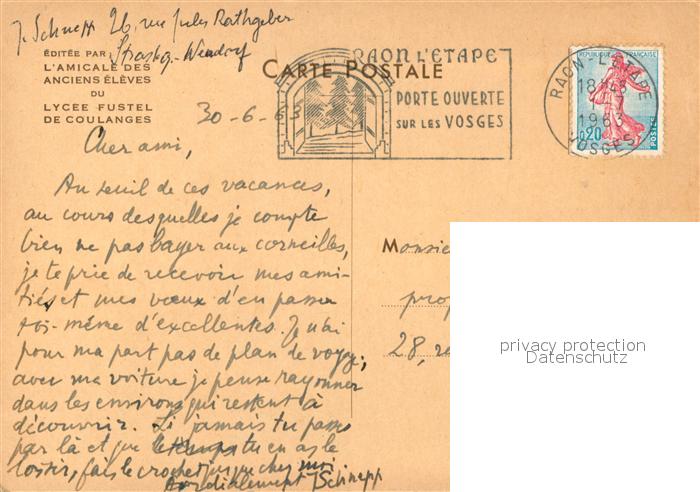 J. Schnepp 26, rue Jules Rathgeber
Strasbg-Neudorf
ÉDITÉE PAR
L'AMICALE DES
ANCIENS ÉLÈVES
DU
LYCEE FUSTEL
DE COULANGES
CARTE POSTALE
RAON L'ETAPE
PORTE OUVERTE
SUR LES VOSGES
RAON-L'ETAPE
18H
1963
VOSGES
RÉPUBLIQUE FRANÇAISE
0,20
POSTES
30-6-63
Cher ami,
Au seuil de ces vacances,
au cours desquelles je compte
bien ne pas bayer aux corneilles,
je te prie de recevoir mes ami-
tiés et mes vœux d'en passer
toi-même d'excellentes. Je n'ai
pour ma part pas de plan de voyage;
avec ma voiture je pense rayonner
dans les environs qui restent à
découvrir. Si jamais tu passes
par là et que tu en as le
loisir, fais le crochet jusque chez moi
Cordialement JSchnepp
Monsie
prof
28, r
privacy protection
Datenschutz